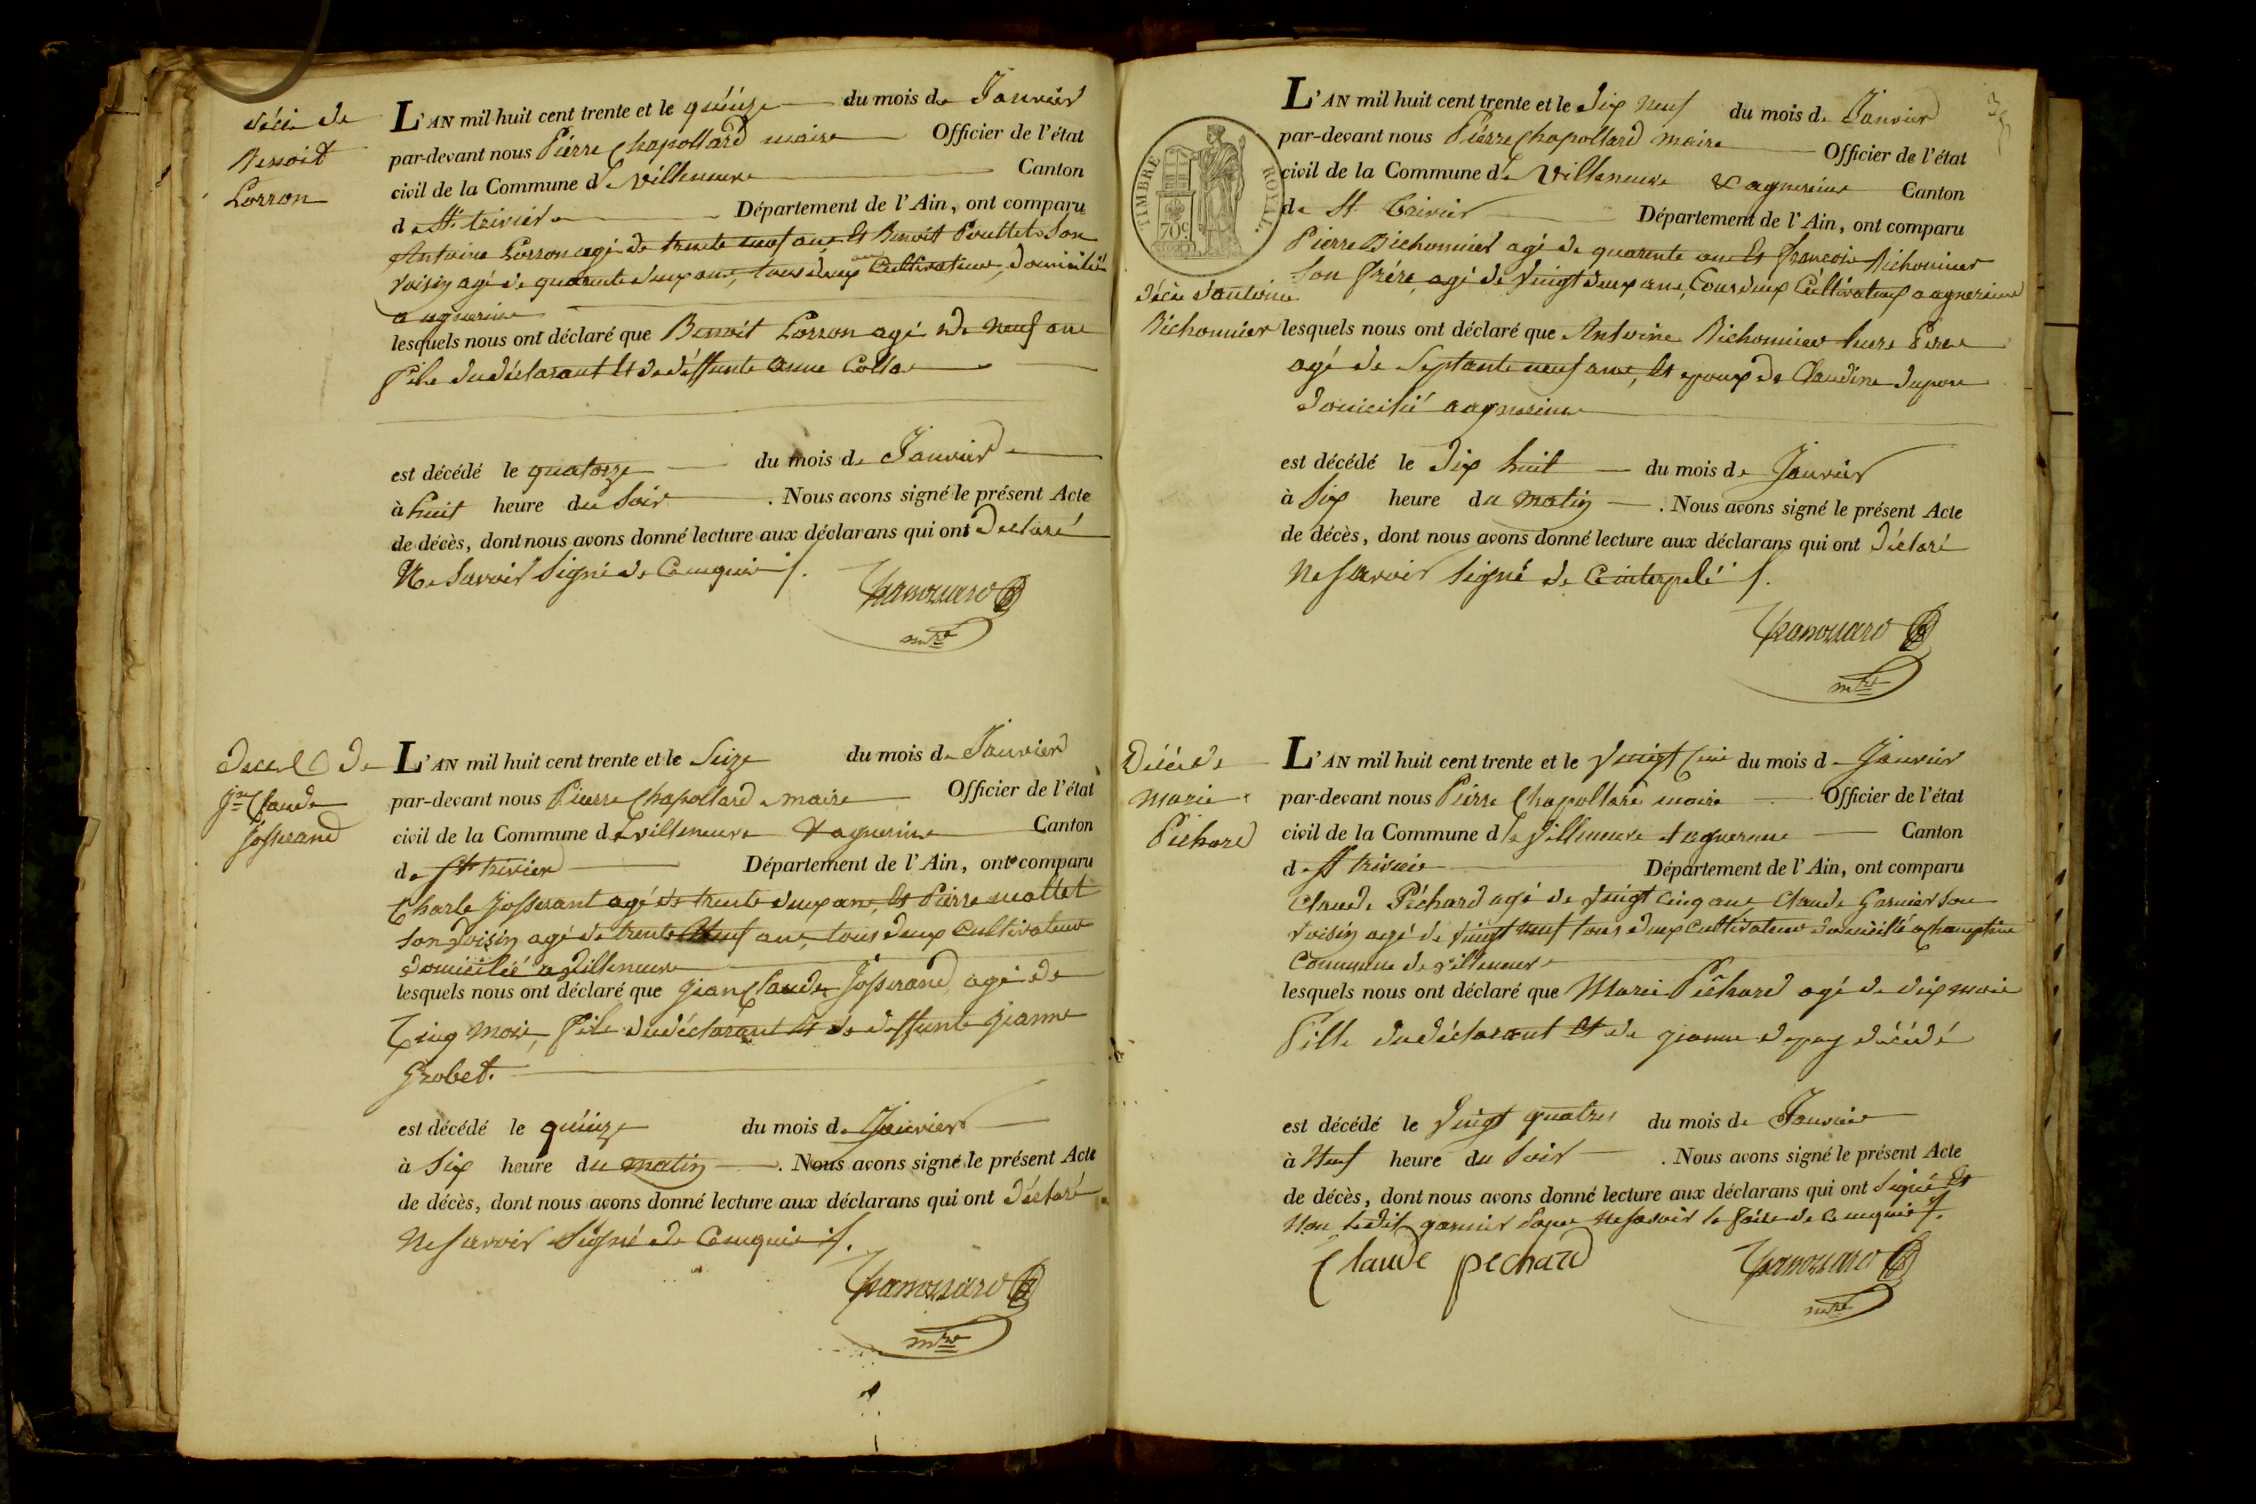 décès de
Benoit
Lorron
L'AN mil huit cent trente et le quinze du mois de Janvier
par-devant nous Pierre Chapollard maire Officier de l'état
civil de la Commune de villeneuve Canton
de St trivier Département de l'Ain, ont comparu
Antoine Lorron agé de trente neuf ans et Benoit Pouttet son
voisin agé de quarante deux ans, tous deux Cultivateur, domicilié
a agnereins
lesquels nous ont déclaré que Benoit Lorron agé de neuf ans
fils du déclarant et de deffunte anne Collas
est décédé le quatorze du mois de Janvier
à huit heure du soir . Nous avons signé le présent Acte
de décès, dont nous avons donné lecture aux déclarans qui ont déclaré
Ne savoir signé de ce enquis
mre
deces de
Jn Claude
Josserand
L'AN mil huit cent trente et le seize du mois de Janvier
par-devant nous Pierre Chapollard maire Officier de l'état
civil de la Commune de villeneuve & agnereins Canton
de St trivier Département de l'Ain, ont comparu
Charle Josserant agé de trente deux ans, et Pierre mottet
son voisin agé de trente neuf ans, tous deux Cultivateur
domicilié a villeneuve
lesquels nous ont déclaré que Jean Claude Josserand agé de
Cinq mois, fils du déclarant et de deffunte Jeanne
Grobet.
est décédé le quinze du mois de Janvier
à six heure du matin . Nous avons signé le présent Acte
de décès, dont nous avons donné lecture aux déclarans qui ont déclaré
Ne savoir signé de ce enquis
mre
TIMBRE ROYAL.
70c
décès d'antoine
Bichonnier
L'AN mil huit cent trente et le dix neuf du mois de Janvier
par-devant nous Pierre Chapollard maire Officier de l'état
civil de la Commune de Villeneuve & agnereins Canton
de St Trivier Département de l'Ain, ont comparu
Pierre Bichonnier agé de quarante ans et françois Bichonnier
son frère, agé de vingt deux ans, tous deux Cultivateurs a agnereins
lesquels nous ont déclaré que Antoine Bichonnier leurs Père
agé de septante neuf ans, et epoux de Claudine dupon
domicilié a agnereins
est décédé le dix huit du mois de Janvier
à six heure du matin . Nous avons signé le présent Acte
de décès, dont nous avons donné lecture aux déclarans qui ont déclaré
Ne savoir signé de ce interpelé
mre
Décès de
marie
Pichard
L'AN mil huit cent trente et le vingt Cinq du mois de Janvier
par-devant nous Pierre Chapollard maire Officier de l'état
civil de la Commune de Villeneuve & agnereins Canton
de St trivier Département de l'Ain, ont comparu
Claude Péchard agé de vingt cinq ans Claude Garnier son
voisin agé de vingt neuf tous deux cultivateur domicilié a
Commune de villeneuve
lesquels nous ont déclaré que Marie Péchard agé de dix mois
fille du déclarant et de Jeanne décédé
est décédé le Vingt quatres du mois de Janvier
à Neuf heure du Soir . Nous avons signé le présent Acte
de décès, dont nous avons donné lecture aux déclarans qui ont signé et
Non ledit garnier pour ne savoir le faire de ce enquis
Claude pechard
mre